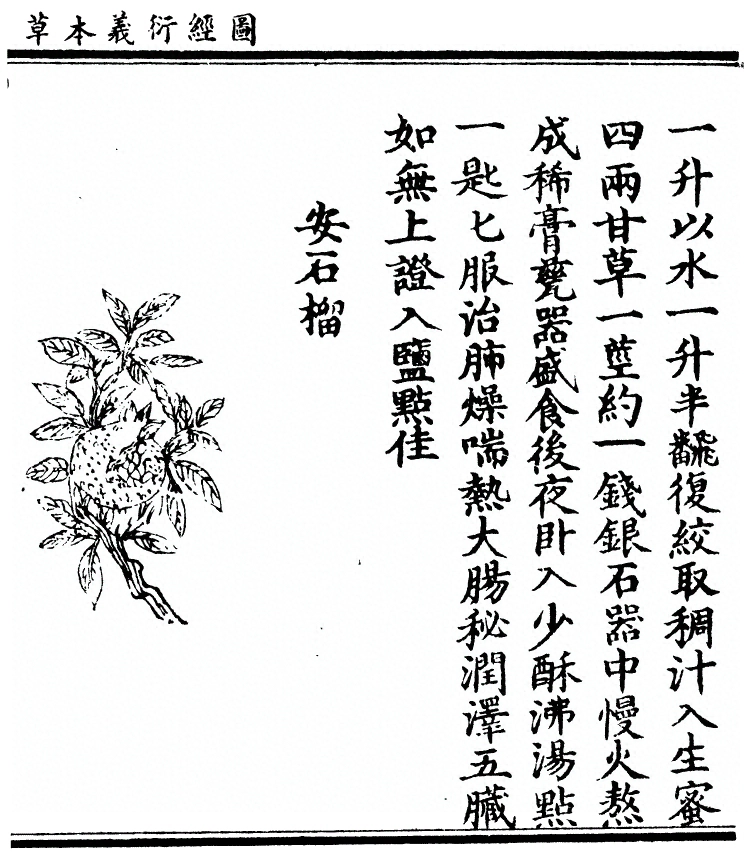 圖經衍義本草
一升以水一升半飜復絞取稠汁入生蜜
四兩甘草一莖約一錢銀石器中慢火熬
成稀膏甆器盛食後夜卧入少酥沸湯點
一匙匕服治肺燥喘熱大腸秘潤澤五臟
如無上證入鹽點佳
安石榴